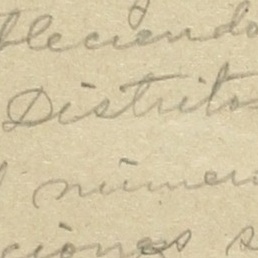 bleciendo
Distritos
número
ciones s